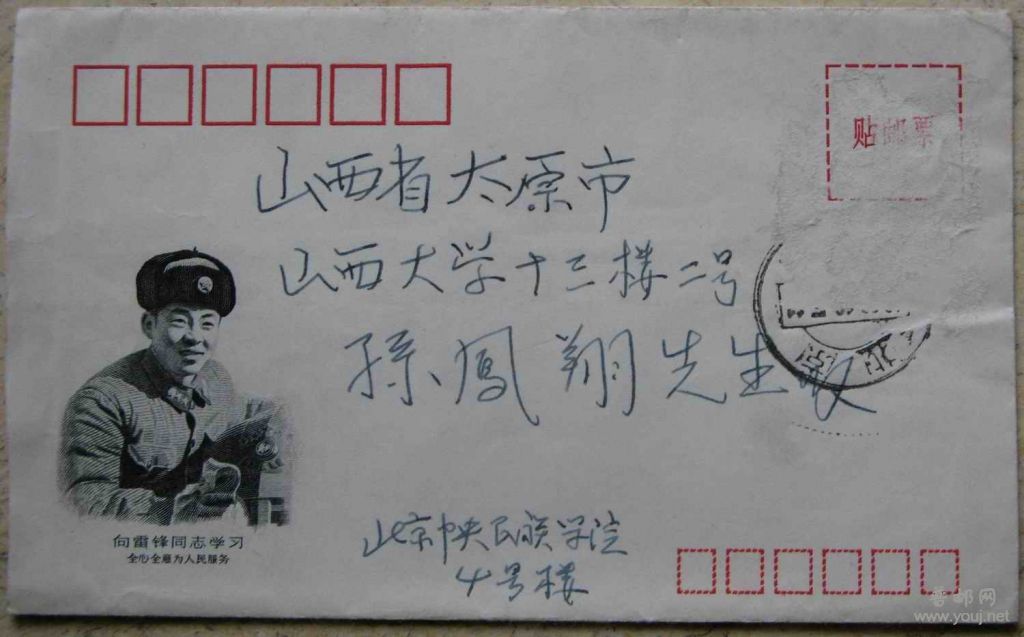 贴邮票
山西省太原市
山西大学十三楼二号
孙凤翔先生收
北京
向雷锋同志学习
全心全意为人民服务
北京中央民族学院
4号楼
晋邮网
www.youj.net